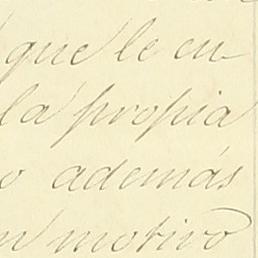 que le en
la propia
o además
n motivo